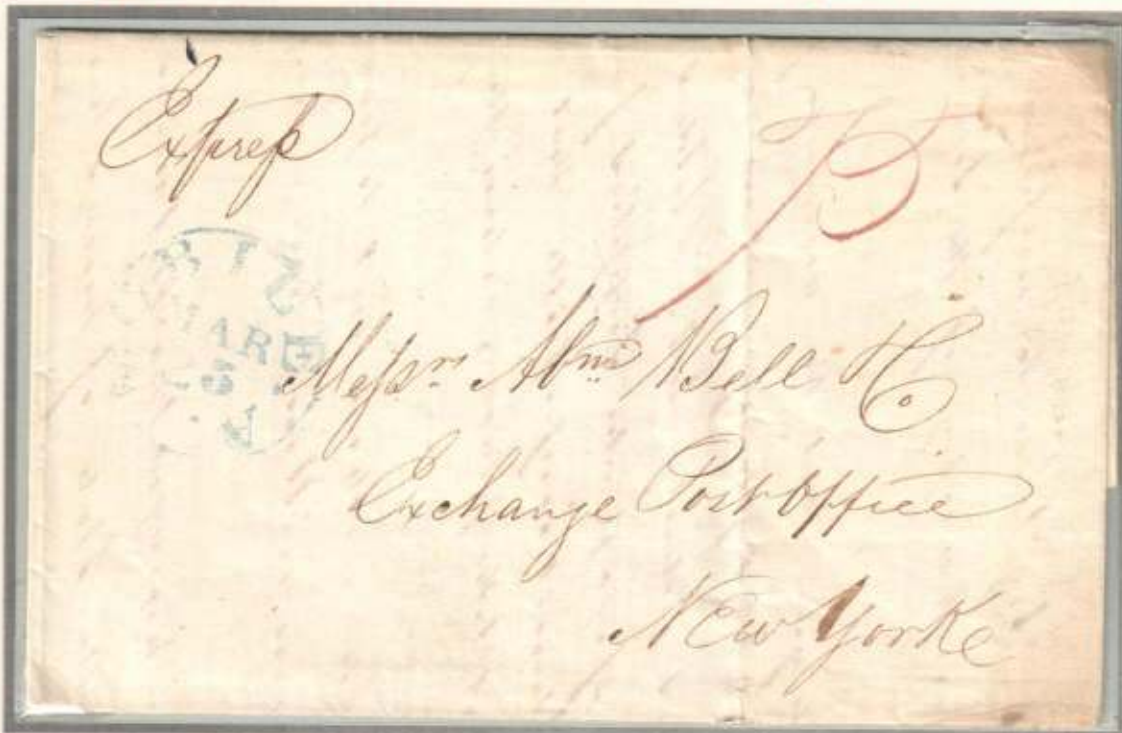 Expreſs
75
MAR
Meſsrs Abm Bell & Co
Exchange Post Office
New York